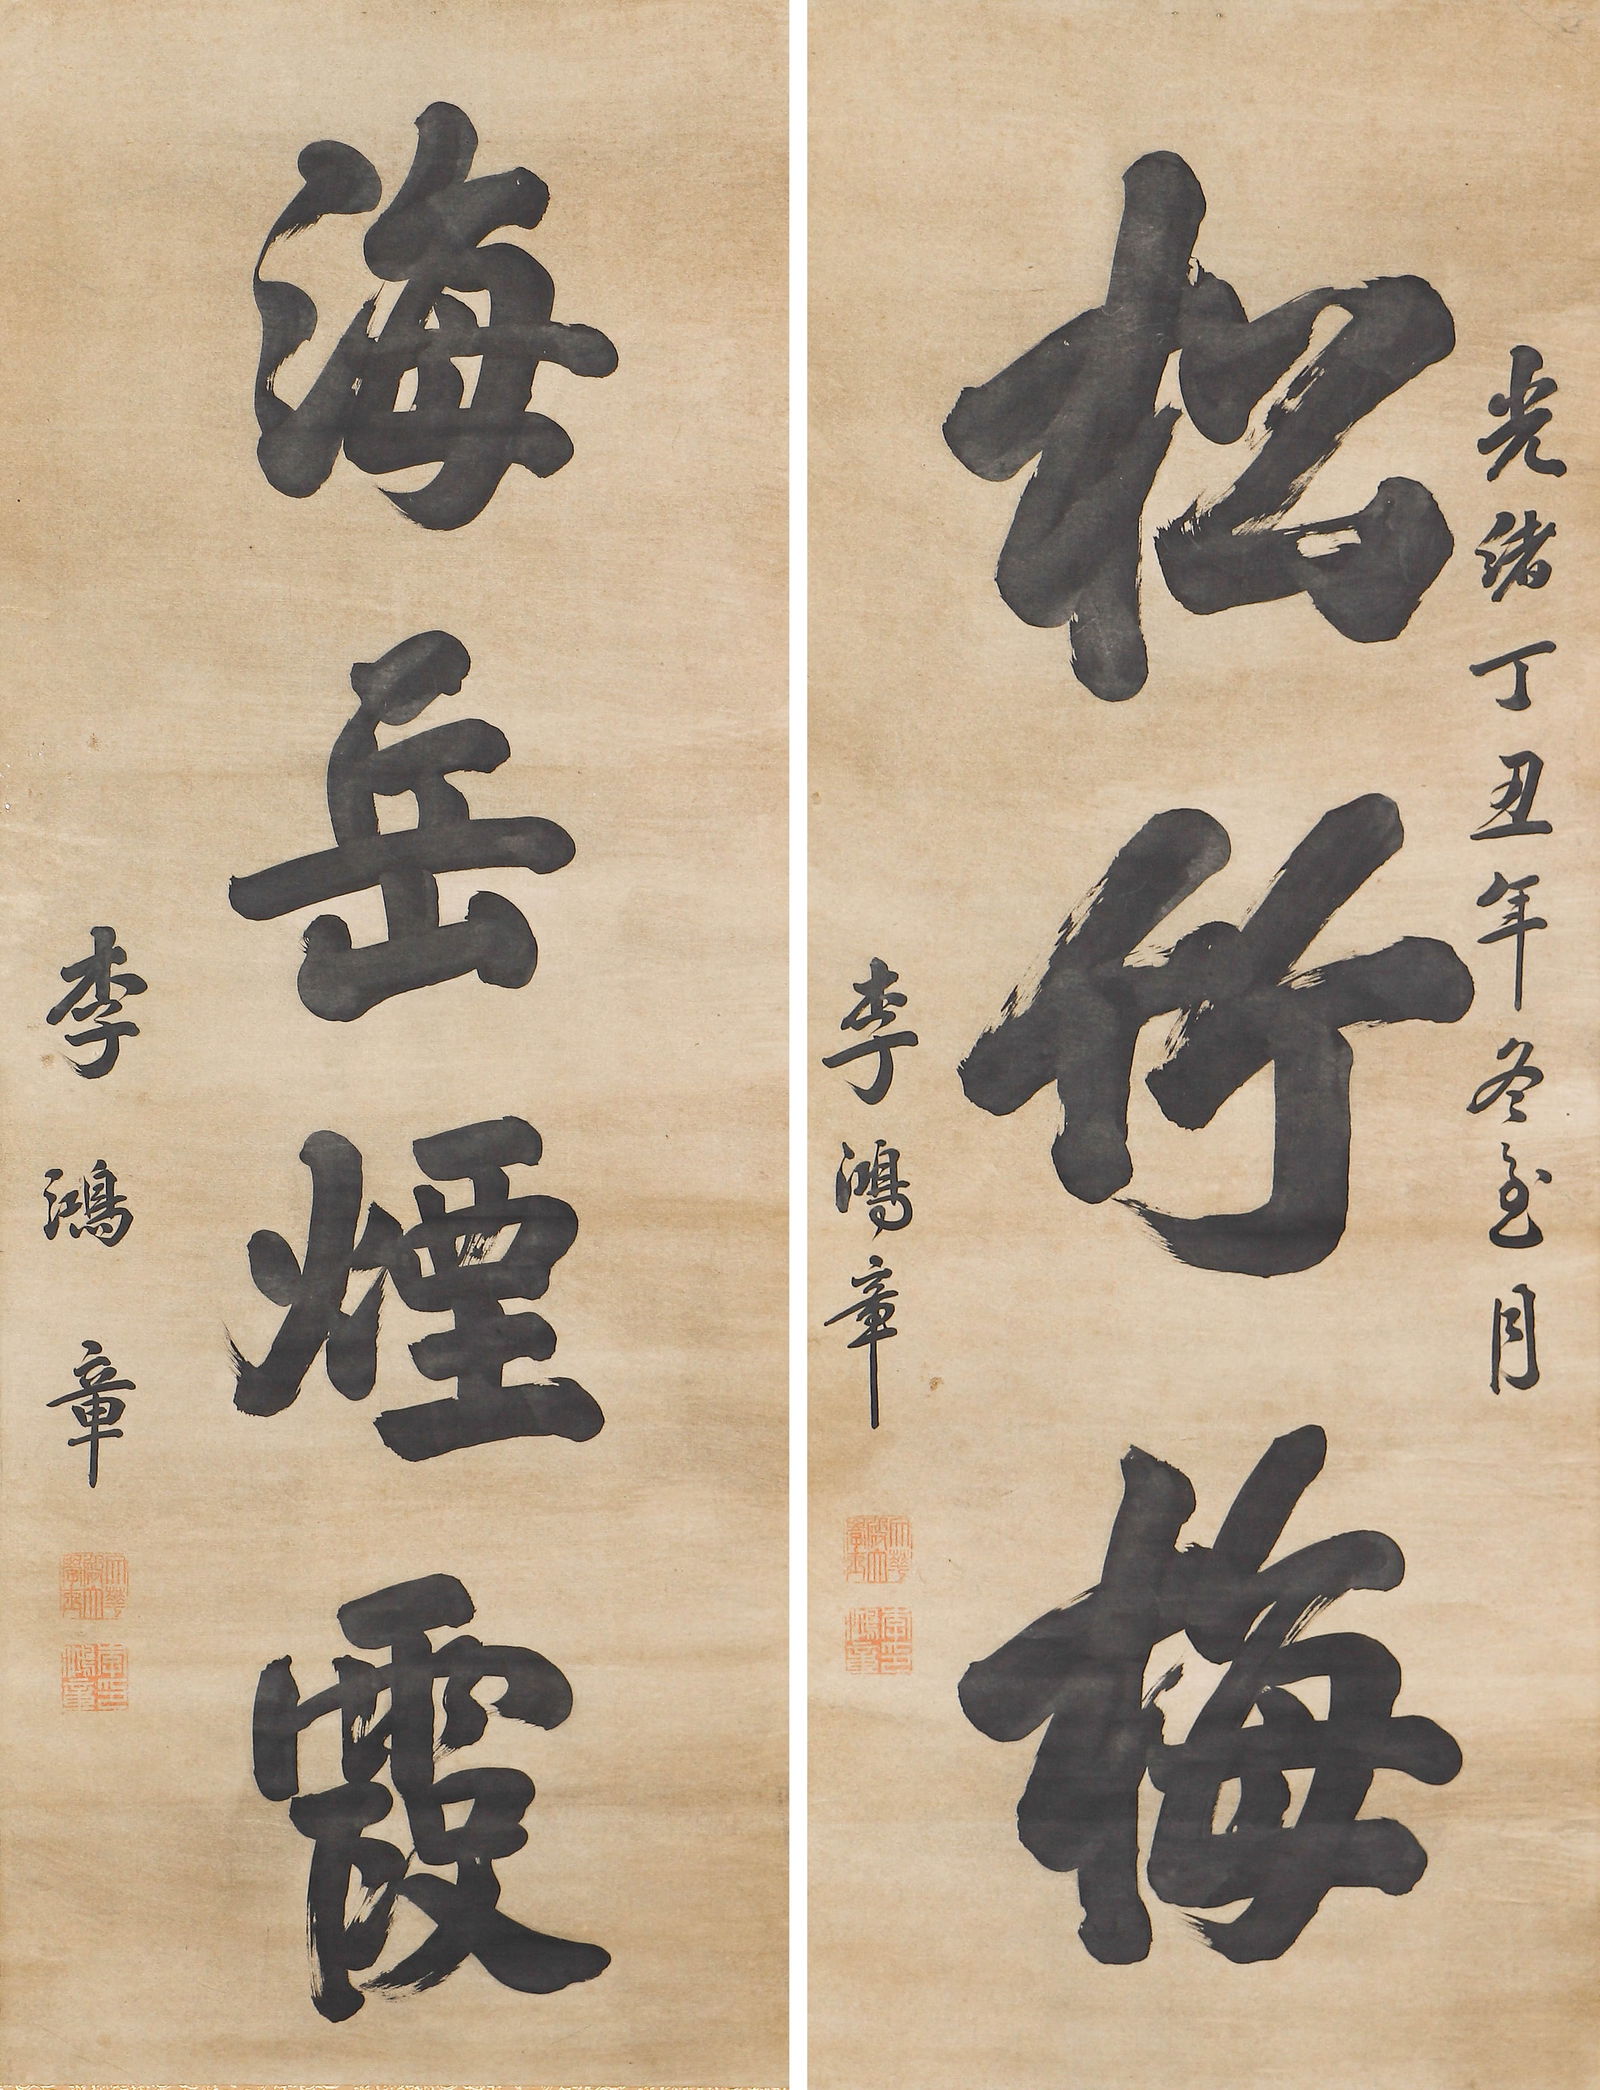 光緒丁丑年冬至月
松竹梅
李鴻章
海岳煙霞
李鴻章